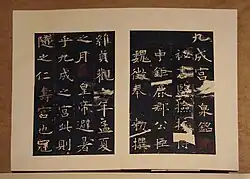 九成宮泉銘
秘書監檢
中鉅鹿郡公臣
魏徵奉勑撰
維貞觀年孟夏
之月皇帝避暑
乎九成之宮此則
隨之仁壽宮也冠